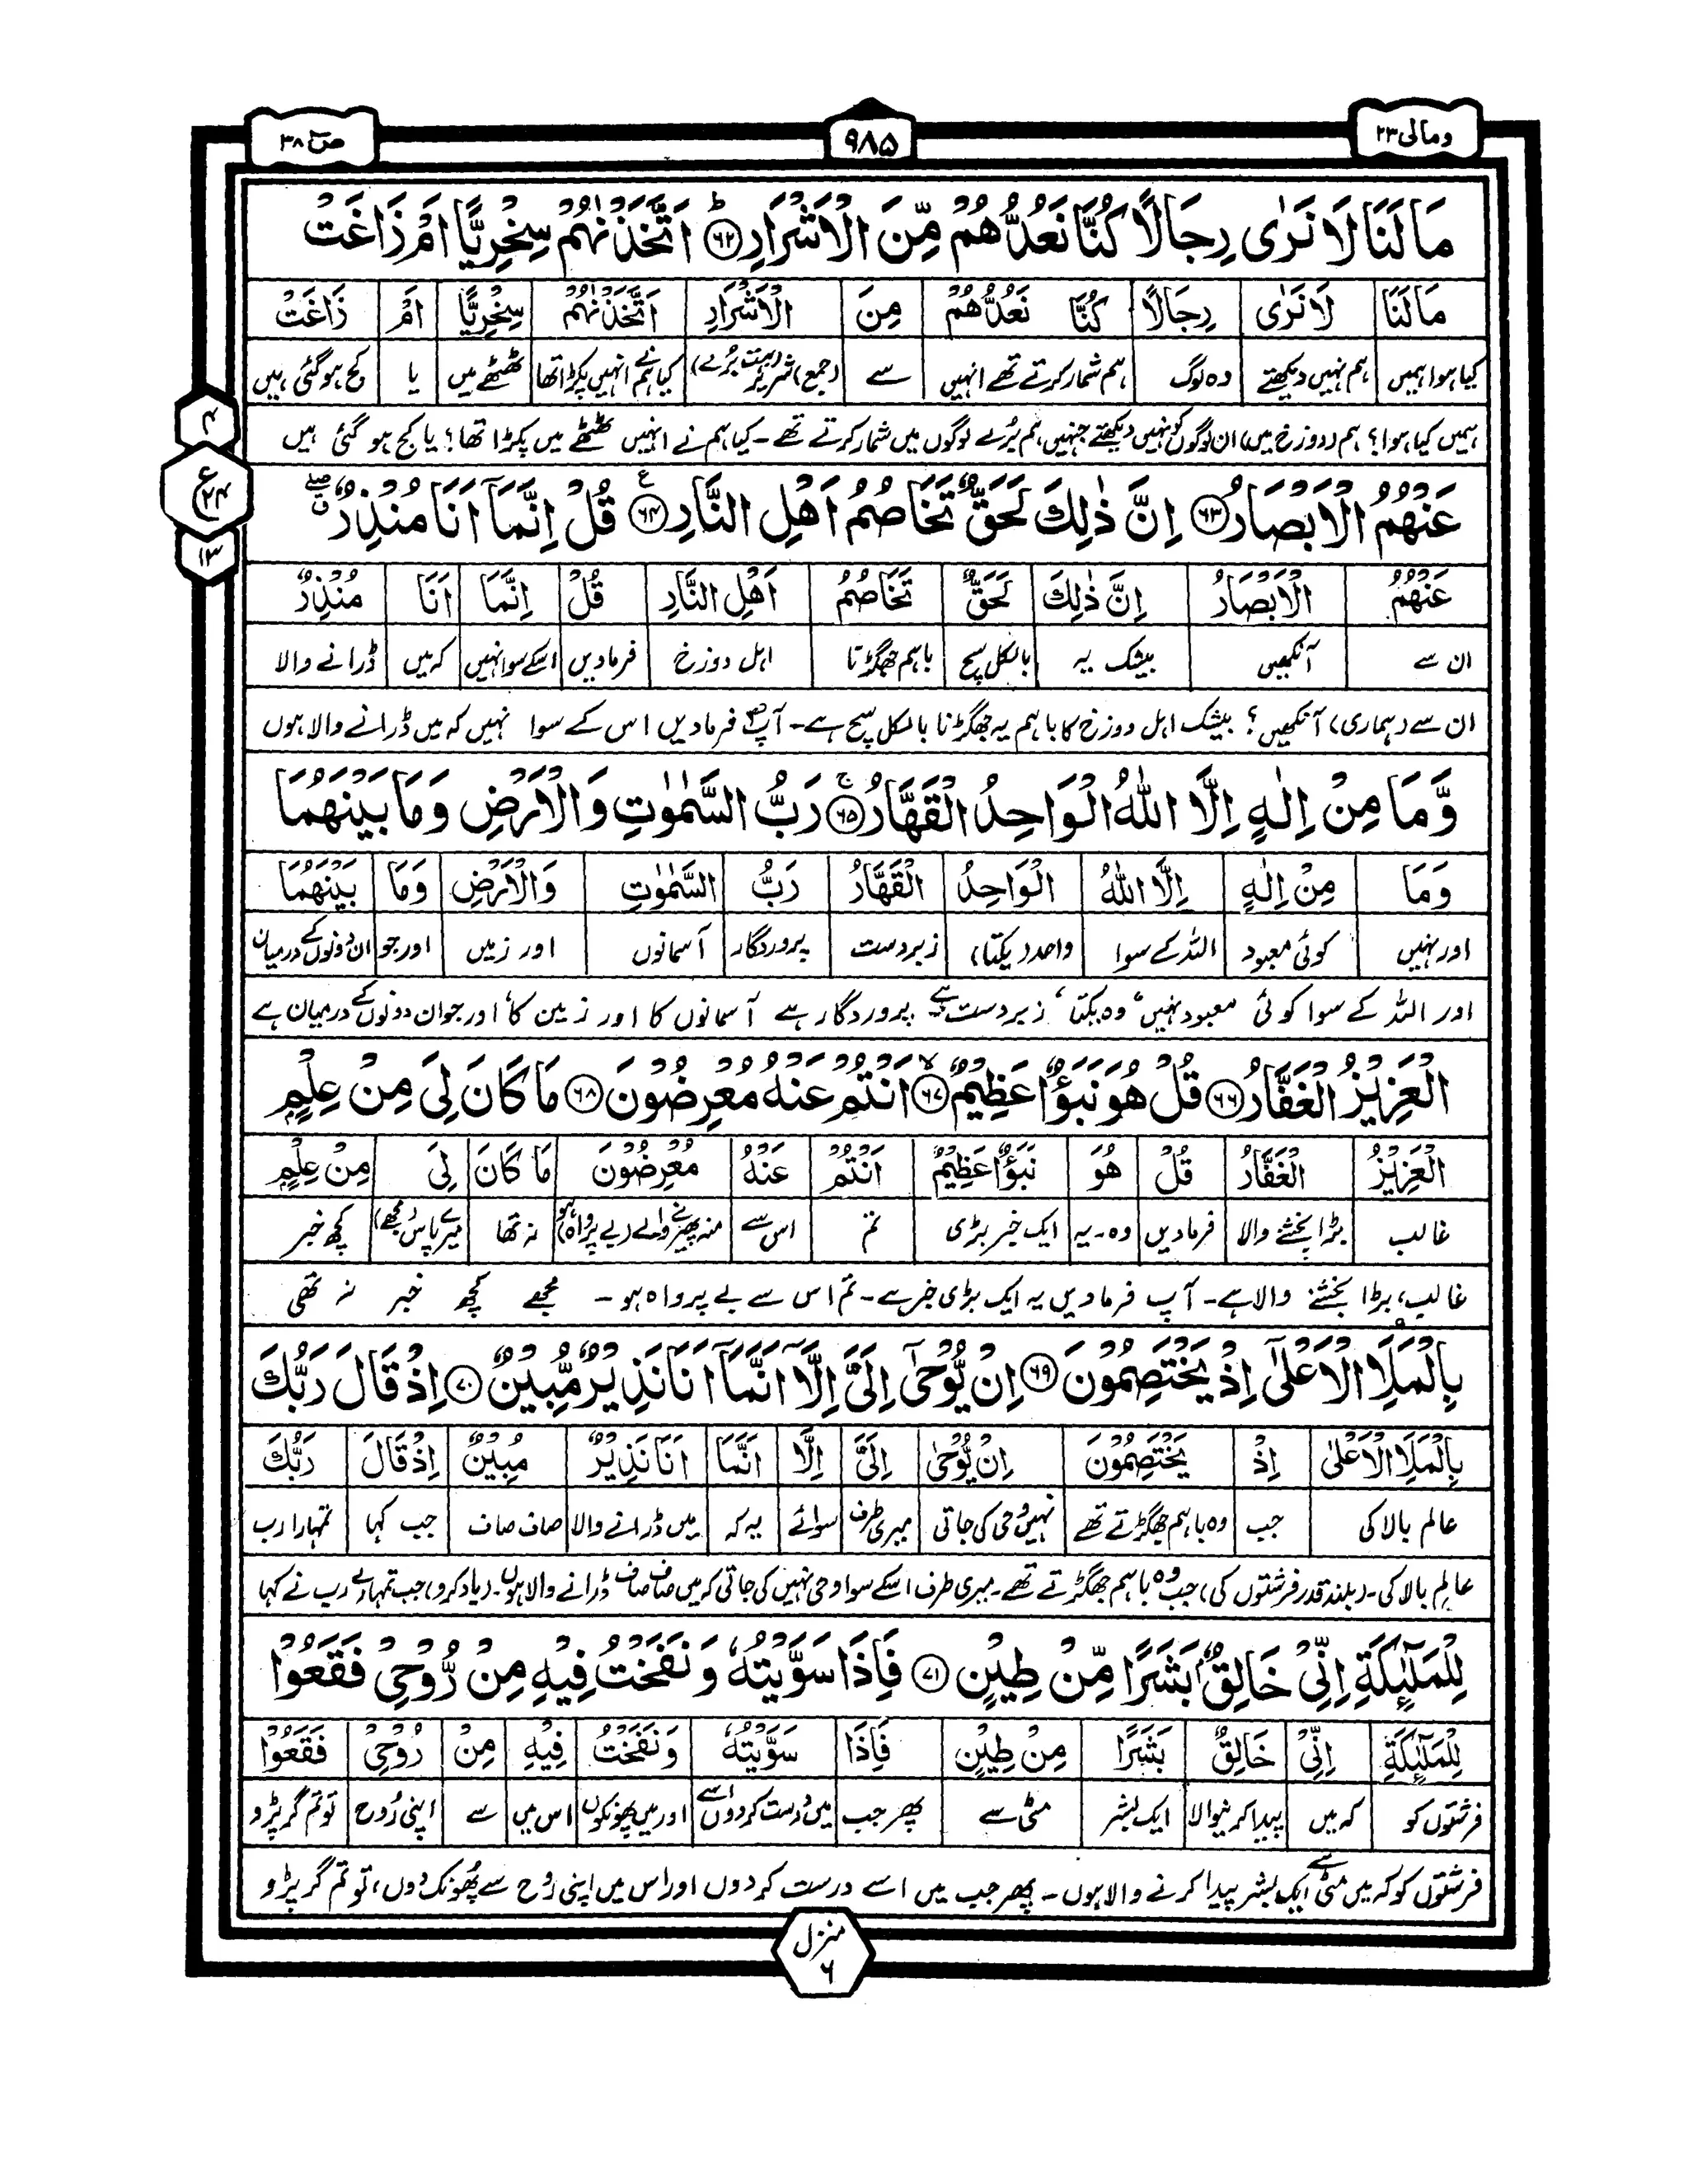 ومالی ۲۳
۹۸۵
صٓ ۳۸
مَا لَنَا لَا نَرٰی رِجَالًا كُنَّا نَعُدُّهُمْ مِّنَ الْاَشْرَارِ ﴿۶۲﴾ؕ اَتَّخَذْنٰهُمْ سِخْرِیًّا اَمْ زَاغَتْ
مَا لَنَا لَا نَرٰی رِجَالًا كُنَّا نَعُدُّهُمْ مِنَ الْاَشْرَارِ اَتَّخَذْنٰهُمْ سِخْرِیًّا اَمْ زَاغَتْ
کیا ہوا ہمیں ہم نہیں دیکھتے وہ لوگ ہم شمار کرتے تھے انہیں سے (جمع) شریر (بہت بُرے) کیا ہم نے انہیں پکڑا تھا ٹھٹھے میں یا کج ہوگئی ہیں
ہمیں کیا ہوا؟ ہم (دوزخ میں) ان لوگوں کو نہیں دیکھتے جنہیں ہم بُرے لوگوں میں شمار کرتے تھے۔ کیا ہم نے انہیں ٹھٹھے میں پکڑا تھا؟ یا کج ہو گئی ہیں
۴
ع
۲۴
۱۳
عَنْهُمُ الْاَبْصَارُ ﴿۶۳﴾ اِنَّ ذٰلِكَ لَحَقٌّ تَخَاصُمُ اَهْلِ النَّارِ ﴿۶۴﴾ قُلْ اِنَّمَاۤ اَنَا مُنْذِرٌ
عَنْهُمُ الْاَبْصَارُ اِنَّ ذٰلِكَ لَحَقٌّ تَخَاصُمُ اَهْلِ النَّارِ قُلْ اِنَّمَا اَنَا مُنْذِرٌ
ان سے آنکھیں بیشک یہ بالکل سچ باہم جھگڑنا اہل دوزخ فرمادیں اسکے سوا نہیں کہ میں ڈرانے والا
ان سے (ہماری) آنکھیں؟ بیشک اہل دوزخ کا باہم یہ جھگڑنا بالکل سچ ہے۔ آپؐ فرمادیں اس کے سوا نہیں کہ میں ڈرانے والا ہوں
وَّمَا مِنْ اِلٰهٍ اِلَّا اللّٰهُ الْوَاحِدُ الْقَهَّارُ ﴿۶۵﴾ۚ رَبُّ السَّمٰوٰتِ وَالْاَرْضِ وَمَا بَیْنَهُمَا
وَمَا مِنْ اِلٰهٍ اِلَّا اللّٰهُ الْوَاحِدُ الْقَهَّارُ رَبُّ السَّمٰوٰتِ وَالْاَرْضِ وَمَا بَیْنَهُمَا
اور نہیں کوئی معبود اللہ کے سوا واحد (یکتا) زبردست پروردگار آسمانوں اور زمیں اور جو ان دونوں کے درمیان
اور اللہ کے سوا کوئی معبود نہیں، وہ یکتا، زبردست ہے پروردگار ہے آسمانوں کا اور زمین کا، اور جو ان دونوں کے درمیان ہے
الْعَزِیْزُ الْغَفَّارُ ﴿۶۶﴾ قُلْ هُوَ نَبَؤٌا عَظِیْمٌ ﴿۶۷﴾ۙ اَنْتُمْ عَنْهُ مُعْرِضُوْنَ ﴿۶۸﴾ مَا كَانَ لِیَ مِنْ عِلْمٍۭ
الْعَزِیْزُ الْغَفَّارُ قُلْ هُوَ نَبَؤٌا عَظِیْمٌ اَنْتُمْ عَنْهُ مُعْرِضُوْنَ مَا كَانَ لِیَ مِنْ عِلْمٍۭ
غالب بڑا بخشنے والا فرمادیں وہ۔ یہ ایک خبر بڑی تم اس سے منہ پھیرنے والے (بے پرواہ) ہو نہ تھا میرے پاس (مجھے) کچھ خبر
غالب، بڑا بخشنے والا ہے۔ آپ فرمادیں یہ ایک بڑی خبر ہے۔ تم اس سے بے پرواہ ہو۔ مجھے کچھ خبر نہ تھی
بِالْمَلَاِ الْاَعْلٰۤی اِذْ یَخْتَصِمُوْنَ ﴿۶۹﴾ اِنْ یُّوْحٰۤی اِلَیَّ اِلَّاۤ اَنَّمَاۤ اَنَا نَذِیْرٌ مُّبِیْنٌ ﴿۷۰﴾ اِذْ قَالَ رَبُّكَ
بِالْمَلَاِ الْاَعْلٰی اِذْ یَخْتَصِمُوْنَ اِنْ یُّوْحٰی اِلَیَّ اِلَّا اَنَّمَا اَنَا نَذِیْرٌ مُبِیْنٌ اِذْ قَالَ رَبُّكَ
عالم بالا کی جب وہ باہم جھگڑتے تھے نہیں وحی کی جاتی میری طرف سوائے یہ کہ میں ڈرانے والا صاف صاف جب کہا تمہارا رب
عالم بالا کی۔ (بلند قدر فرشتوں کی) جب وہ باہم جھگڑتے تھے۔ میری طرف اسکے سوا وحی نہیں کی جاتی کہ میں صاف صاف ڈرانے والا ہوں۔ (یاد کرو) جب تمہارے رب نے کہا
لِلْمَلٰٓئِكَةِ اِنِّیْ خَالِقٌۢ بَشَرًا مِّنْ طِیْنٍ ﴿۷۱﴾ فَاِذَا سَوَّیْتُهٗ وَنَفَخْتُ فِیْهِ مِنْ رُّوْحِیْ فَقَعُوْا
لِلْمَلٰٓئِكَةِ اِنِّیْ خَالِقٌ بَشَرًا مِنْ طِیْنٍ فَاِذَا سَوَّیْتُهٗ وَنَفَخْتُ فِیْهِ مِنْ رُوْحِیْ فَقَعُوْا
فرشتوں کو کہ میں پیدا کرنیوالا ایک بشر مٹی سے پھر جب میں درست کردوں اسے اور میں پھونکوں اس میں سے اپنی رُوح تو تم گر پڑو
فرشتوں کو کہ میں مٹی سے ایک بشر پیدا کرنے والا ہوں۔ پھر جب میں اسے درست کردوں اور اس میں اپنی روح سے پُھونک دوں، تو تم گر پڑو
منزل
۶